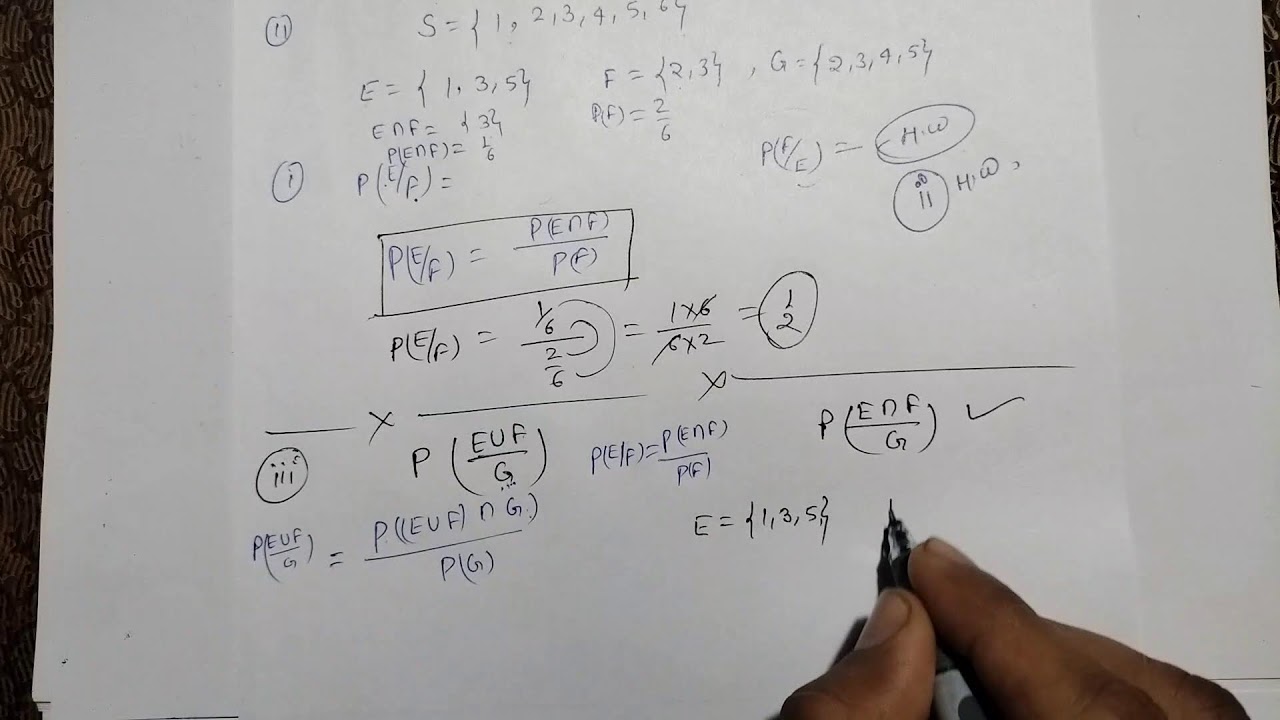 (11) S = { 1, 2, 3, 4, 5, 6}
E = { 1, 3, 5} F = {2, 3} , G = {2, 3, 4, 5}
E∩F = {3} P(F) = 2/6
P(E∩F) = 1/6
(i) P(E/F) = P(F/E) = H.W
(ii) H.W,
P(E/F) = P(E∩F)/P(F)
P(E/F) = (1/6)/(2/6) = (1×6)/(6×2) = 1/2
× ×
(iii) P(E∪F/G) P(E/F) = P(E∩F)/P(F) P(E∩F/G) ✓
P(E∪F/G) = P((E∪F)∩G)/P(G) E = {1, 3, 5}